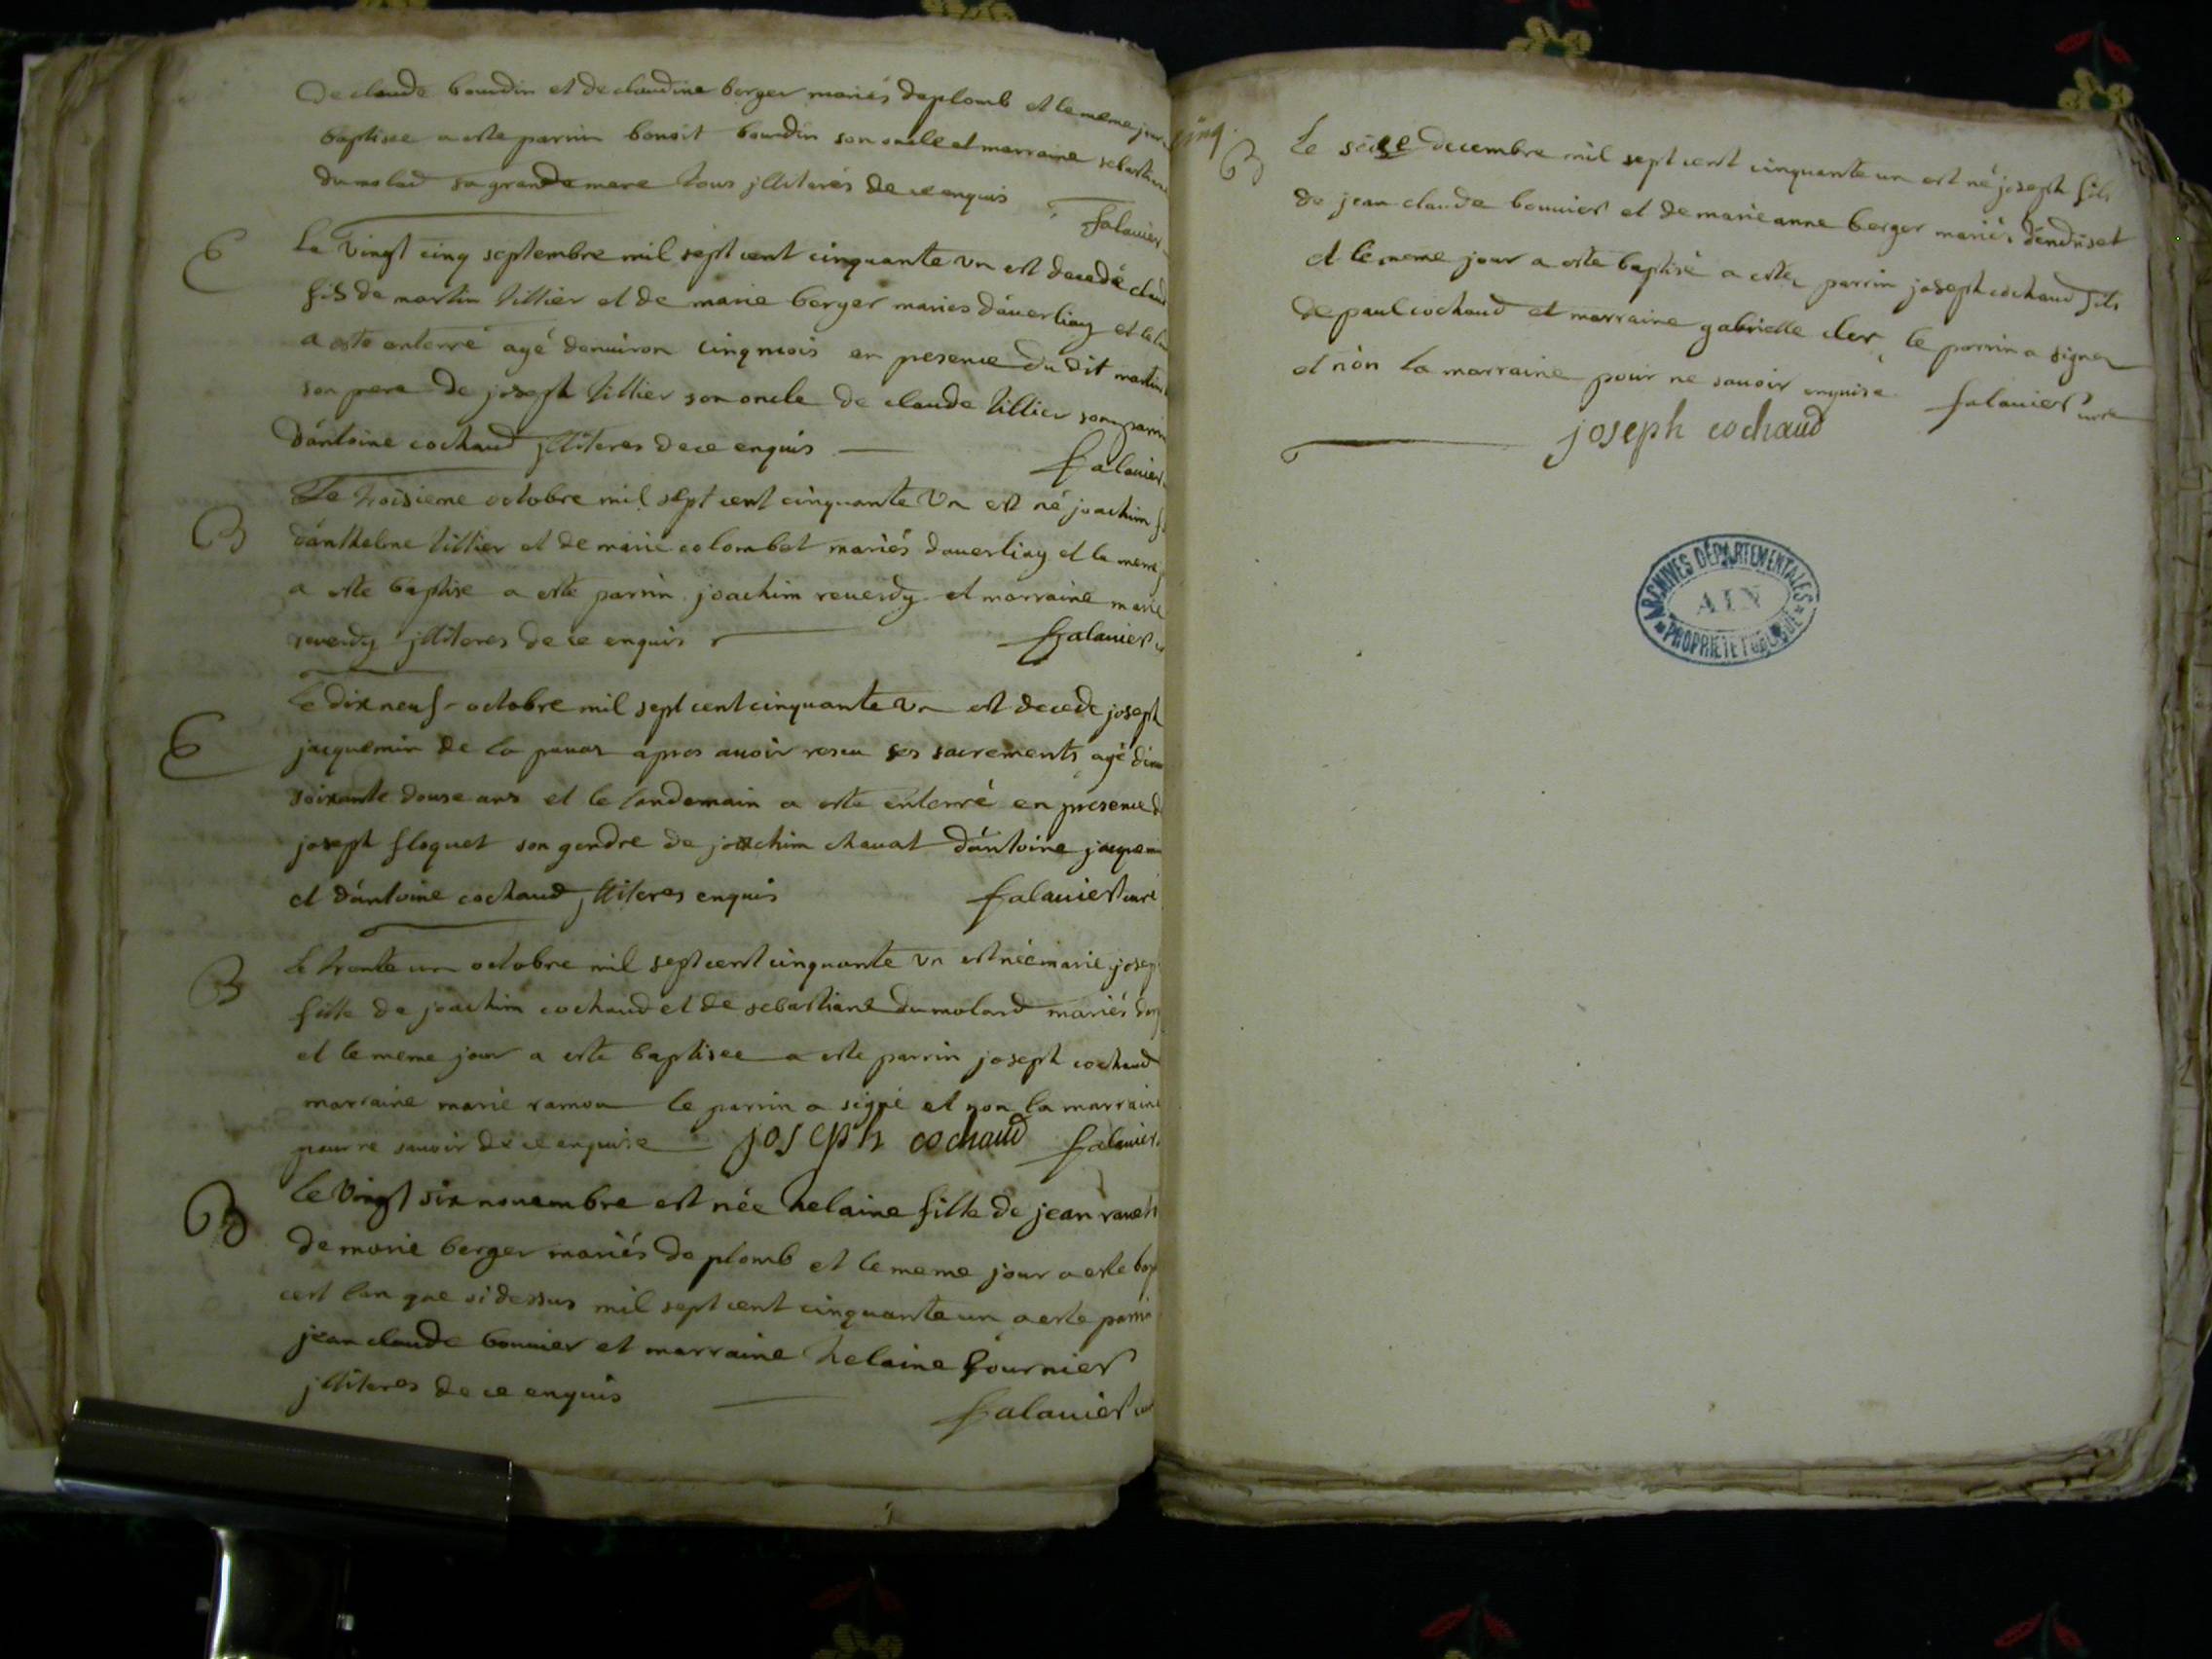 De claude bourdin et de claudine berger mariés deplomb et le meme jour
baptisee a este parrin benoit bourdin son oncle et marraine sebastiene
dumolad sa grandemere tous jlliterés de ce enquis
falavier
E
Le vingt cinq septembre mil sept cent cinquante vn est decedé claud
fils de martin tillier et de marie berger maries daverliaz et le len
a este enterré agé denuiron cinq mois en presence du dit martin
son pere de joseph tillier son oncle de claude tillier son parrin
dantoine cochaud jlliteres de ce enquis
falavier
B
Le troisieme octobre mil sept cent cinquante vn est né joachim fi
danthelme tillier et de marie colombet mariés daverliaz et le meme j
a este baptise a este parrin joachim reverdy et marraine marie
reverdy jlliteres de ce enquis
falavier
E
le dix neuf octobre mil sept cent cinquante vn est decede joseph
jacquemin de la apres avoir reseu ses sacrements agé
soixante douse ans et le landemain a este enterré en presence d
joseph floquet son gendre de joachim chavat dantoine
et dantoine cochaud jlliteres enquis
falavier curé
B
le trente un octobre mil sept cent cinquante vn est née marie josep
fille de joachim cochaud et de sebastiane dumolard mariés
et le meme jour a este baptisee a este parrin joseph cochaud
marraine marie ramou le parrin a signé et non la marraine
pour ne savoir de ce enquise joseph cochaud falavier
B
le vingt six novembre est née helaine fille de jean
de marie berger mariés de plomb et le meme jour a este bap
cest lan que si dessus mil sept cent cinquante un a este parrin
jean claude bonnier et marraine helaine fournier
jlliteres de ce enquis
falavier
B
Le seise decembre mil sept cent cinquante un est né joseph fils
de jean claude bonnier et de marie anne berger mariés
et le meme jour a este baptisé a este parrin joseph cochaud fils
de paul cochaud et marraine gabrielle cler le parrin a signe
et non la marraine pour ne savoir enquise falavier curé
joseph cochaud
ARCHIVES DÉPARTEMENTALES
AIN
PROPRIÉTÉ PUBLIQUE